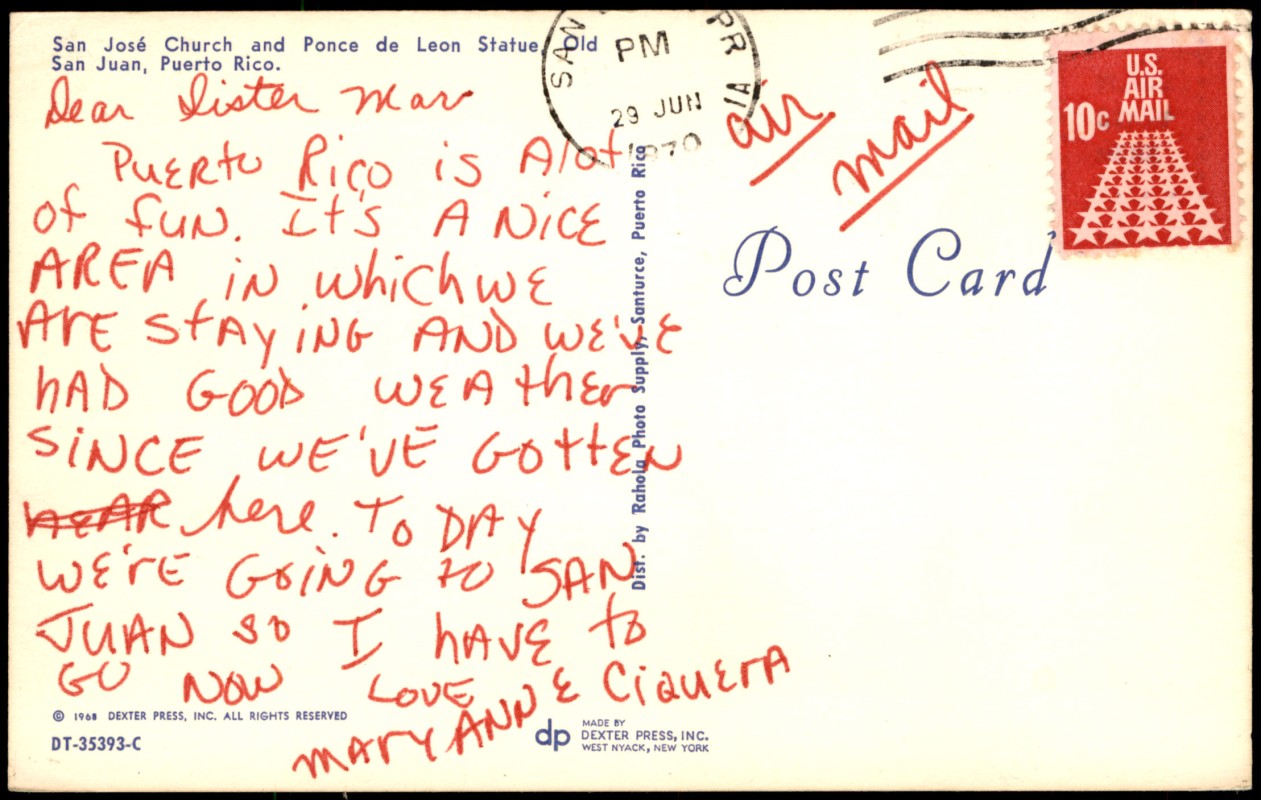 San José Church and Ponce de Leon Statue, Old
San Juan, Puerto Rico.
Dear Sister Mar
Puerto Rico is Alot
of fun. It's A Nice
AREA in which we
Are staying AND we've
had Good weather
since we've Gotten
here. To DAY
we're Going to SAN
JUAN so I have to
Go Now Love
MARY ANN & Ciquera
© 1968 DEXTER PRESS, INC. ALL RIGHTS RESERVED
DT-35393-C
Dist. by Rahola Photo Supply, Santurce, Puerto Rico
dp MADE BY
DEXTER PRESS, INC.
WEST NYACK, NEW YORK
SAN PR
PM
29 JUN
1970
air
mail
Post Card
U.S.
AIR
MAIL
10c